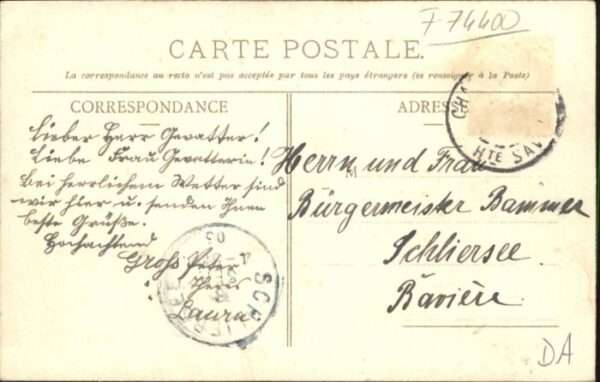 F 74400
CARTE POSTALE.
La correspondance au recto n'est pas acceptée par tous les pays étrangers (se renseigner à la Poste)
CORRESPONDANCE
ADRESSE
Lieber Herr Gevatter!
Liebe Frau Gevatterin!
Bei herrlichem Wetter sind
wir hier u. senden Ihnen
beste Grüße.
Hochachtend
Groß Peter
Laura
Herrn und Frau
Bürgermeister Bammer
Schliersee.
Bavière.
CHA
HTE SAV
SCHLIERSEE
DA